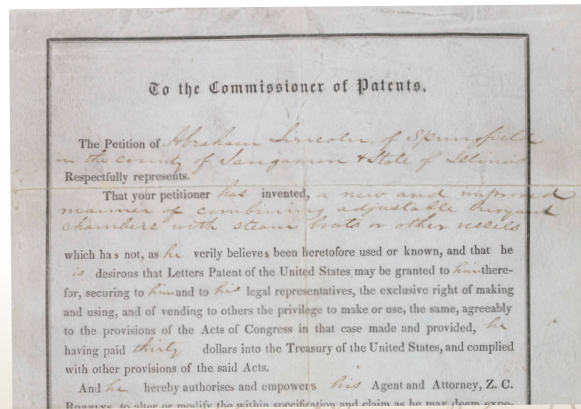 To the Commissioner of Patents.
The Petition of Abraham Lincoln, of Springfield
in the county of Sangamon & State of Illinois
Respectfully represents.
That your petitioner has invented, a new and improved
manner of combining adjustable buoyant
chambers with steam boats or other vessels
which has not, as he verily believes been heretofore used or known, and that he
is desirous that Letters Patent of the United States may be granted to him there-
for, securing to him and to his legal representatives, the exclusive right of making
and using, and of vending to others the privilege to make or use, the same, agreeably
to the provisions of the Acts of Congress in that case made and provided, he
having paid thirty dollars into the Treasury of the United States, and complied
with other provisions of the said Acts.
And he hereby authorises and empowers his Agent and Attorney, Z. C.
Robbins, to alter or modify the within specification and claim as he may deem expe-